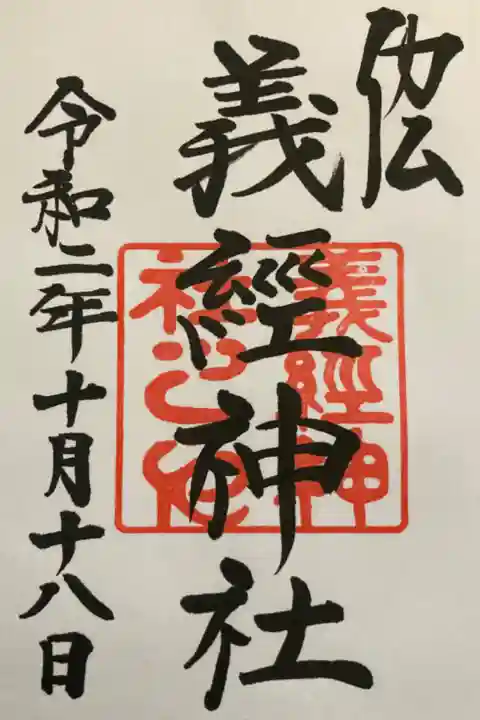 義經神社
義經神
社之印
令和二年十月十八日